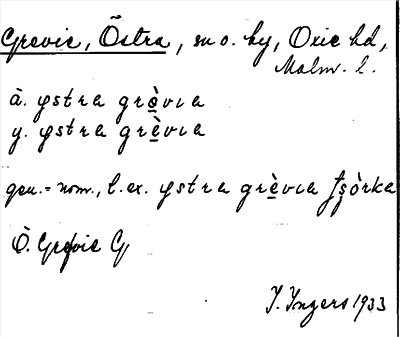 Grevie, Östra, sn o. by, Oxie hd,
Malm. l.
ä. ystra grè̱vıa
y. ystra grè̱vıa
gen. = nom., t. ex. ystra grè̱vıa
Ö. Grevie G
I. Ingers 1933